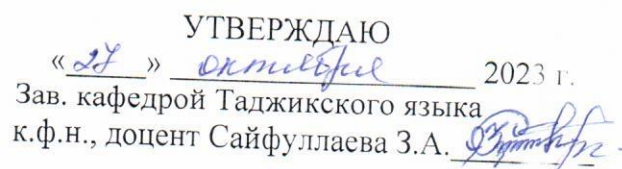 УТВЕРЖДАЮ
«27» октября 2023 г.
Зав. кафедрой Таджикского языка
к.ф.н., доцент Сайфуллаева З.А.